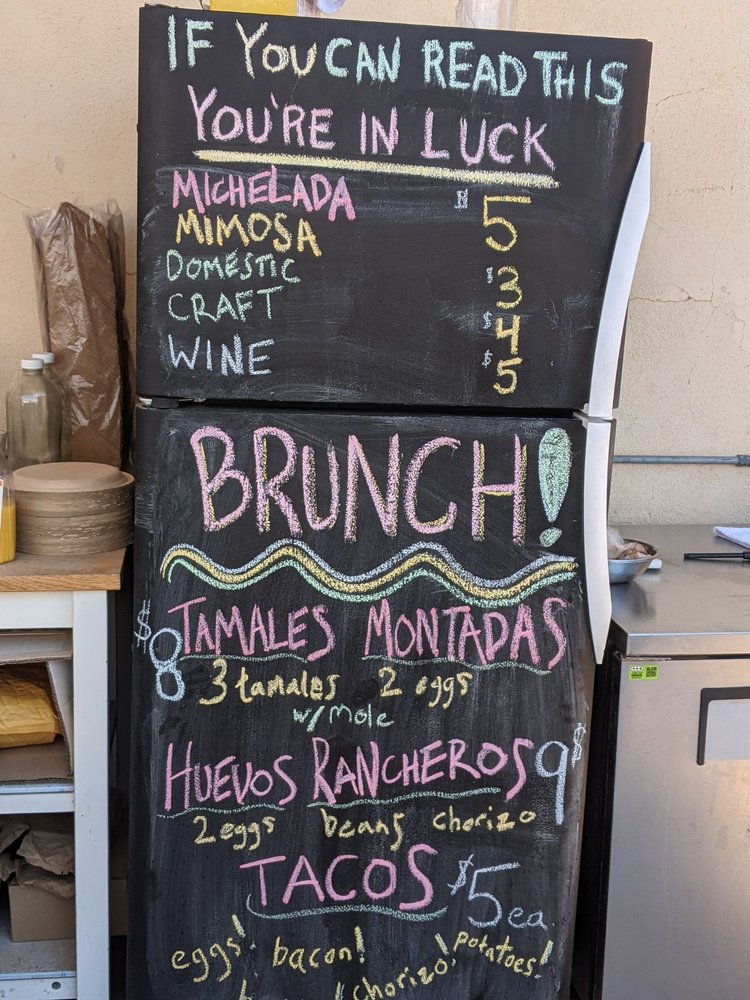 IF YOU CAN READ THIS
YOU'RE IN LUCK
MICHELADA $5
MIMOSA
DOMESTIC $3
CRAFT $4
WINE $5
BRUNCH!
$8 TAMALES MONTADAS
3 tamales 2 eggs
w/ mole
HUEVOS RANCHEROS 9$
2 eggs beans chorizo
TACOS $5 ea.
eggs! bacon! chorizo! potatoes!